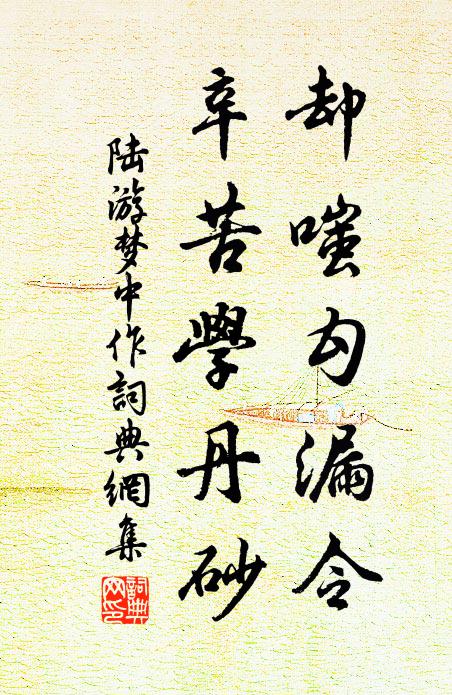 却嗤勾漏令
辛苦學丹砂
陆游梦中作詞典網集
詞典
网印